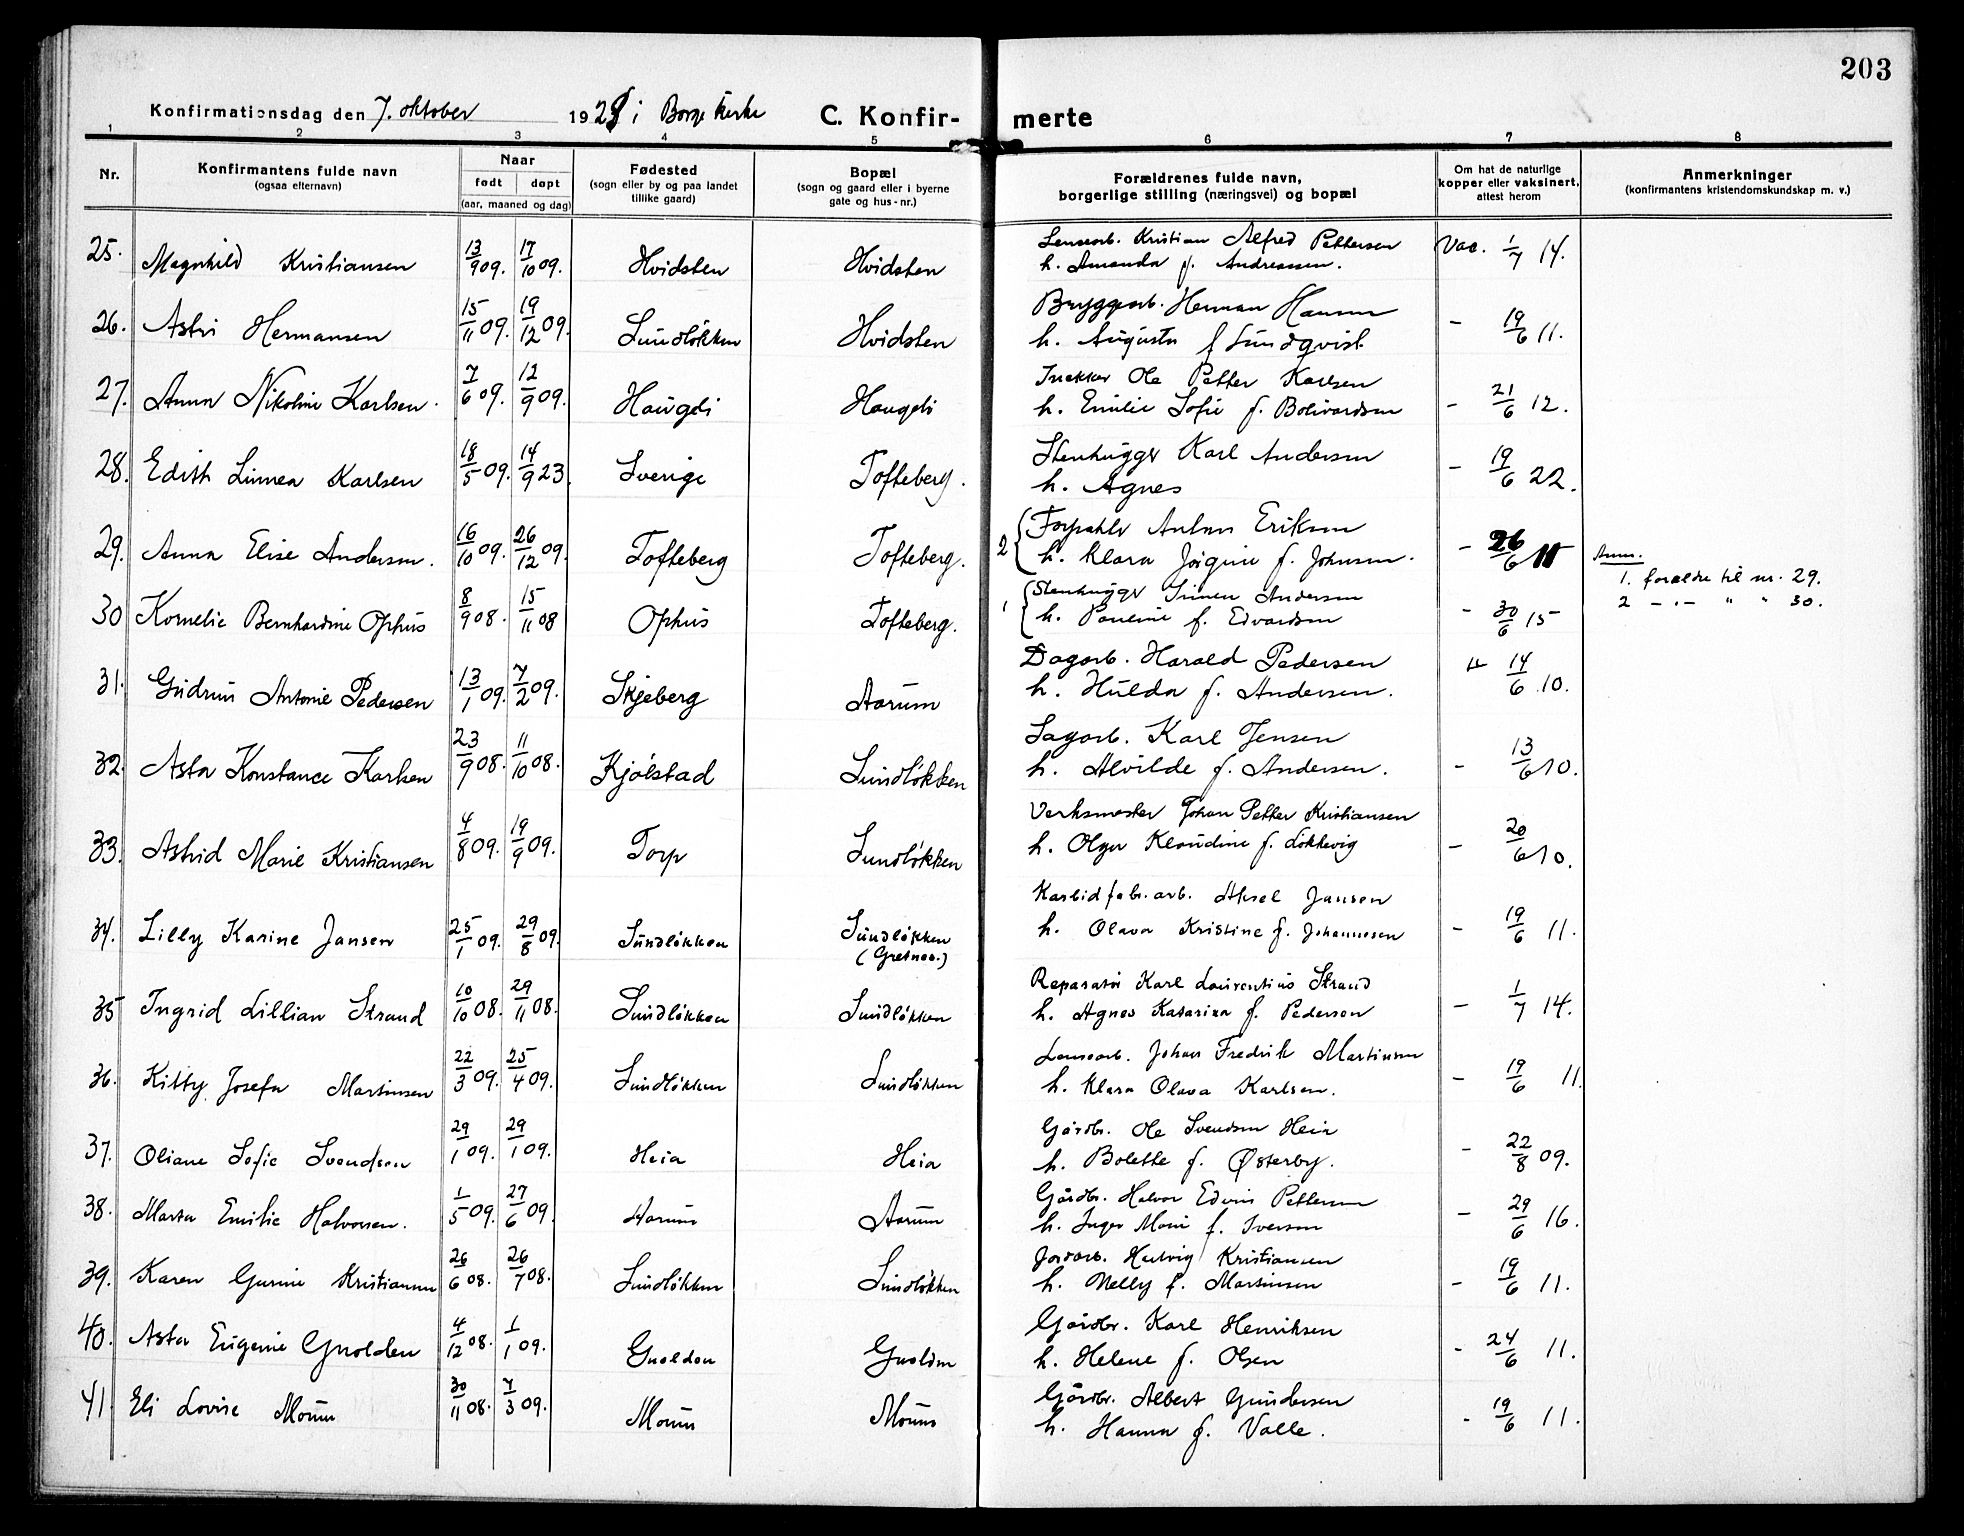 203
Konfirmationsdag den 7. oktober 1928 i Borge kirke C. Konfir- merte
1 2 3 4 5 6 7 8
Nr. Konfirmantens fulde navn (ogsaa efternavn) Naar født døpt (aar, maaned og dag) Fødested (sogn eller by og paa landet tillike gaard) Bopæl (sogn og gaard eller i byerne gate og hus-nr.) Forældrenes fulde navn, borgerlige stilling (næringsvei) og bopæl Om hat de naturlige kopper eller vaksinert, attest herom Anmerkninger (konfirmantens kristendomskundskap m. v.)
25. Magnhild Kristiansen 13/9 09. 17/10 09. Hvidsten Hvidsten Lensearb. Kristian Alfred Pettersen Vac. 1/7 14.
h. Amanda f. Andreassen.
26. Astri Hermansen 15/11 09. 19/12 09. Sundløkken Hvidsten Bryggearb. Herman Hansen - 19/6 11.
h. Augusta f Lundqvist.
27. Anna Nikoline Karlsen. 7/6 09. 12/9 09. Haugdi Haugdi Snekker Ole Petter Karlsen
h. Emilie Sofie f. Bolivardsen - 21/6 12.
28. Edith Linnea Karlsen 18/5 09. 14/9 23. Sverige Tofteberg. Stenhugger Karl Andersen - 19/6 22.
h. Agnes
29. Anna Elise Andersen. 16/10 09. 26/12 09. Tofteberg Tofteberg. 2 { Forpakter Anton Eriksen
h. Klara Jørgine f. Johnsen. - 26/6 11 Anm.
1. forældre til nr. 29.
30 Kornelie Bernhardine Ophus 8/9 08. 15/11 08 Ophus Tofteberg. 1 { Stenhugger Simen Andersen 2 - " - " " 30.
h. Pauline f. Edvardsen - 30/6 15
31. Gudrun Antonie Pedersen 13/1 09. 7/2 09. Skjeberg Aarum Dagarb. Harald Pedersen 14/6 10.
h. Hulda f. Andersen.
32. Asta Konstance Karlsen 23/9 08. 11/10 08. Kjølstad Sundløkken Sagarb. Karl Jensen
h. Alvilde f. Andersen. - 13/6 10.
33. Astrid Marie Kristiansen 4/8 09. 19/9 09. Torp Sundløkken Verksmester Johan Petter Kristiansen
h. Olga Klaudine f. Løkkevig - 20/6 10.
34. Lilly Karine Jansen 25/1 09. 29/8 09. Sundløkken Sundløkken (Gretnes.) Karbidfabr.arb. Aksel Jansen
h. Olava Kristine f. Johannesen - 19/6 11.
35 Ingrid Lillian Strand 10/10 08. 29/11 08. Sundløkken Sundløkken Reparatør Karl Laurentius Strand
h. Agnes Katarina f. Pedersen - 1/7 14.
36. Kitty Josefa Martinsen 22/3 09. 25/4 09. Sundløkken Sundløkken Lensearb. Johan Fredrik Martinsen
h. Klara Olava Karlsen. - 19/6 11.
37. Oliane Sofie Svendsen 29/1 09. 29/1 09. Heia Heia Gårdbr. Ole Svendsen Heia
h. Bolette f. Østerby. - 22/8 09.
38. Marta Emilie Halvorsen. 1/5 09. 27/6 09. Aarum Aarum Gårdbr. Halvor Edvin Pettersen
h. Inger Marie f. Iversen - 29/6 16.
39. Karen Gurine Kristiansen 26/6 08. 26/7 08. Sundløkken Sundløkken Jordarb. Hartvig Kristiansen
h. Nelly f. Martinsen - 19/6 11.
40. Asta Eugenie Gnolden 4/12 08. 1/1 09. Gnolden Gnolden Gårdbr. Karl Henriksen
h. Helene f. Olsen - 24/6 11.
41. Eli Lovise Moum 30/11 08. 7/3 09. Moum Moum Gårdbr. Albert Gundersen
h. Hanna f. Valle. - 19/6 11.